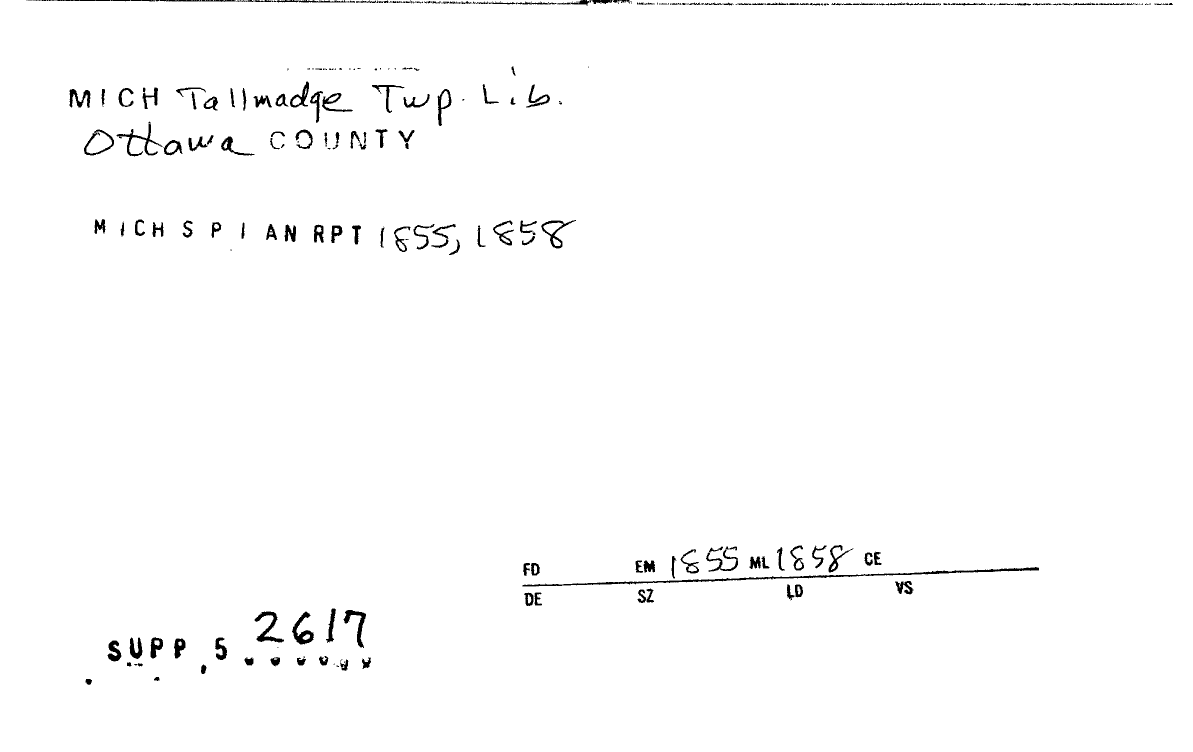 MICH Tallmadge Twp. Lib.
Ottawa COUNTY
MICH S P I AN RPT 1855, 1858
FD EM 1855 ML 1858 CE
DE SZ LD VS
SUPP. 5 2617